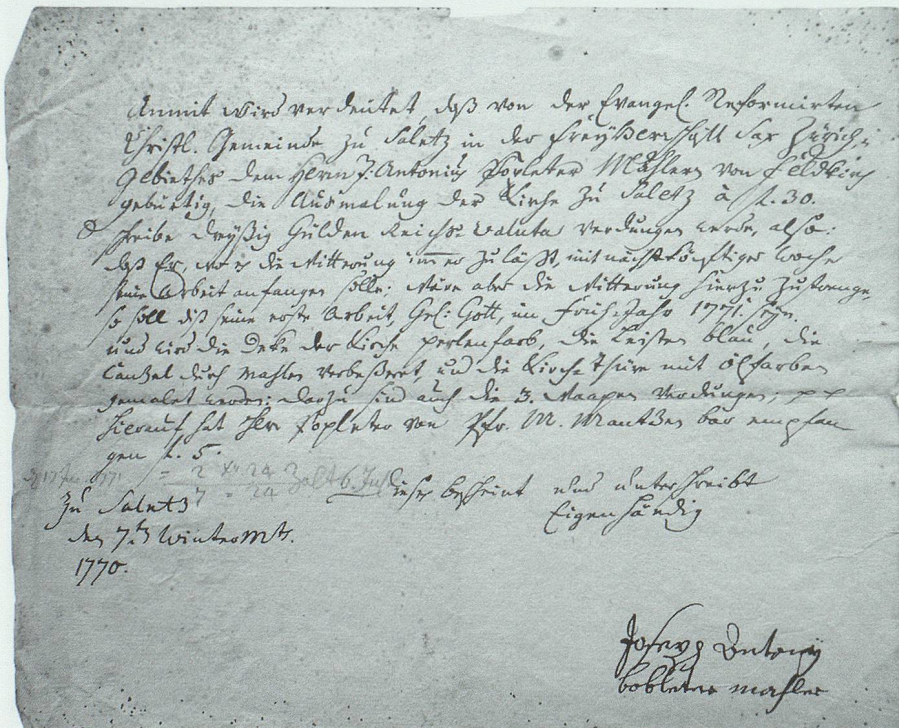 Anmit wird verdeütet, daß von der Evangel. Reformirten
Christl. Gemeinde zu Saletz in der Freÿherrschafft Sax Zürich-
Gebiethes dem Herrn J: Antonius Mahlern von Feldkirch
gebürtig, die Ausmalung der Kirche zu Saletz à f. 30.
schreibe dreÿßig Gulden Reichs-Valuta verdungen werde, also:
daß Er, wo es die Witterung immer zuläßt, mit nächstkönftiger Woche
seine Arbeit anfangen solle; Wäre aber die Witterung hierzu zu strenge,
so soll diß seine erste Arbeit, Gel. Gott, im Früh-Jahr 1771. seÿn.
und wird die Deke der Kirche perlenfarb, die Leisten blau, die
Canzel durch Mahlen verbeßeret, und die Kirchthüre mit Ölfarben
gemalet werden; darzu sind auch die 3. Waapen verdungen; pp
Hierauf hat Herr Popleter von Pfr. M. Mantzen bar empfan
gen f. 5.
dieses bescheint und unterschreibt
Eigenhändig
Zu Saletz
den 7ten WinterMt.
1770.
Joseph Antonÿ
bobleter mahler